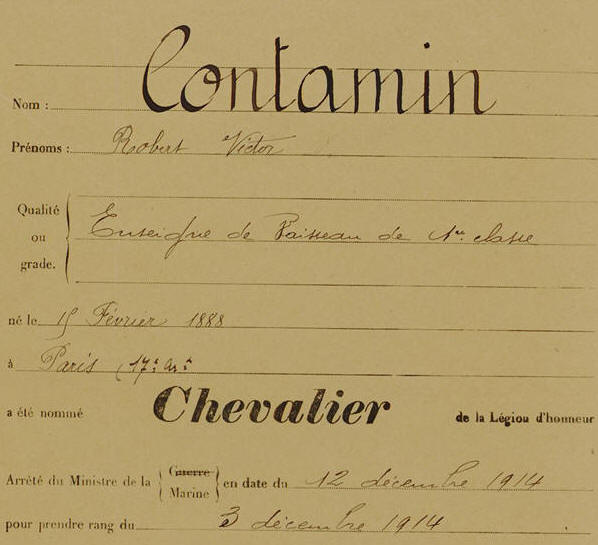 Nom : Contamin
Prénoms : Robert Victor
Qualité
ou
grade.
Enseigne de Vaisseau de 1re classe
né le 15 Février 1888
à Paris (17e arrt
a été nommé Chevalier de la Légion d'honneur
Arrêté du Ministre de la Guerre Marine en date du 12 décembre 1914
pour prendre rang du 3 décembre 1914